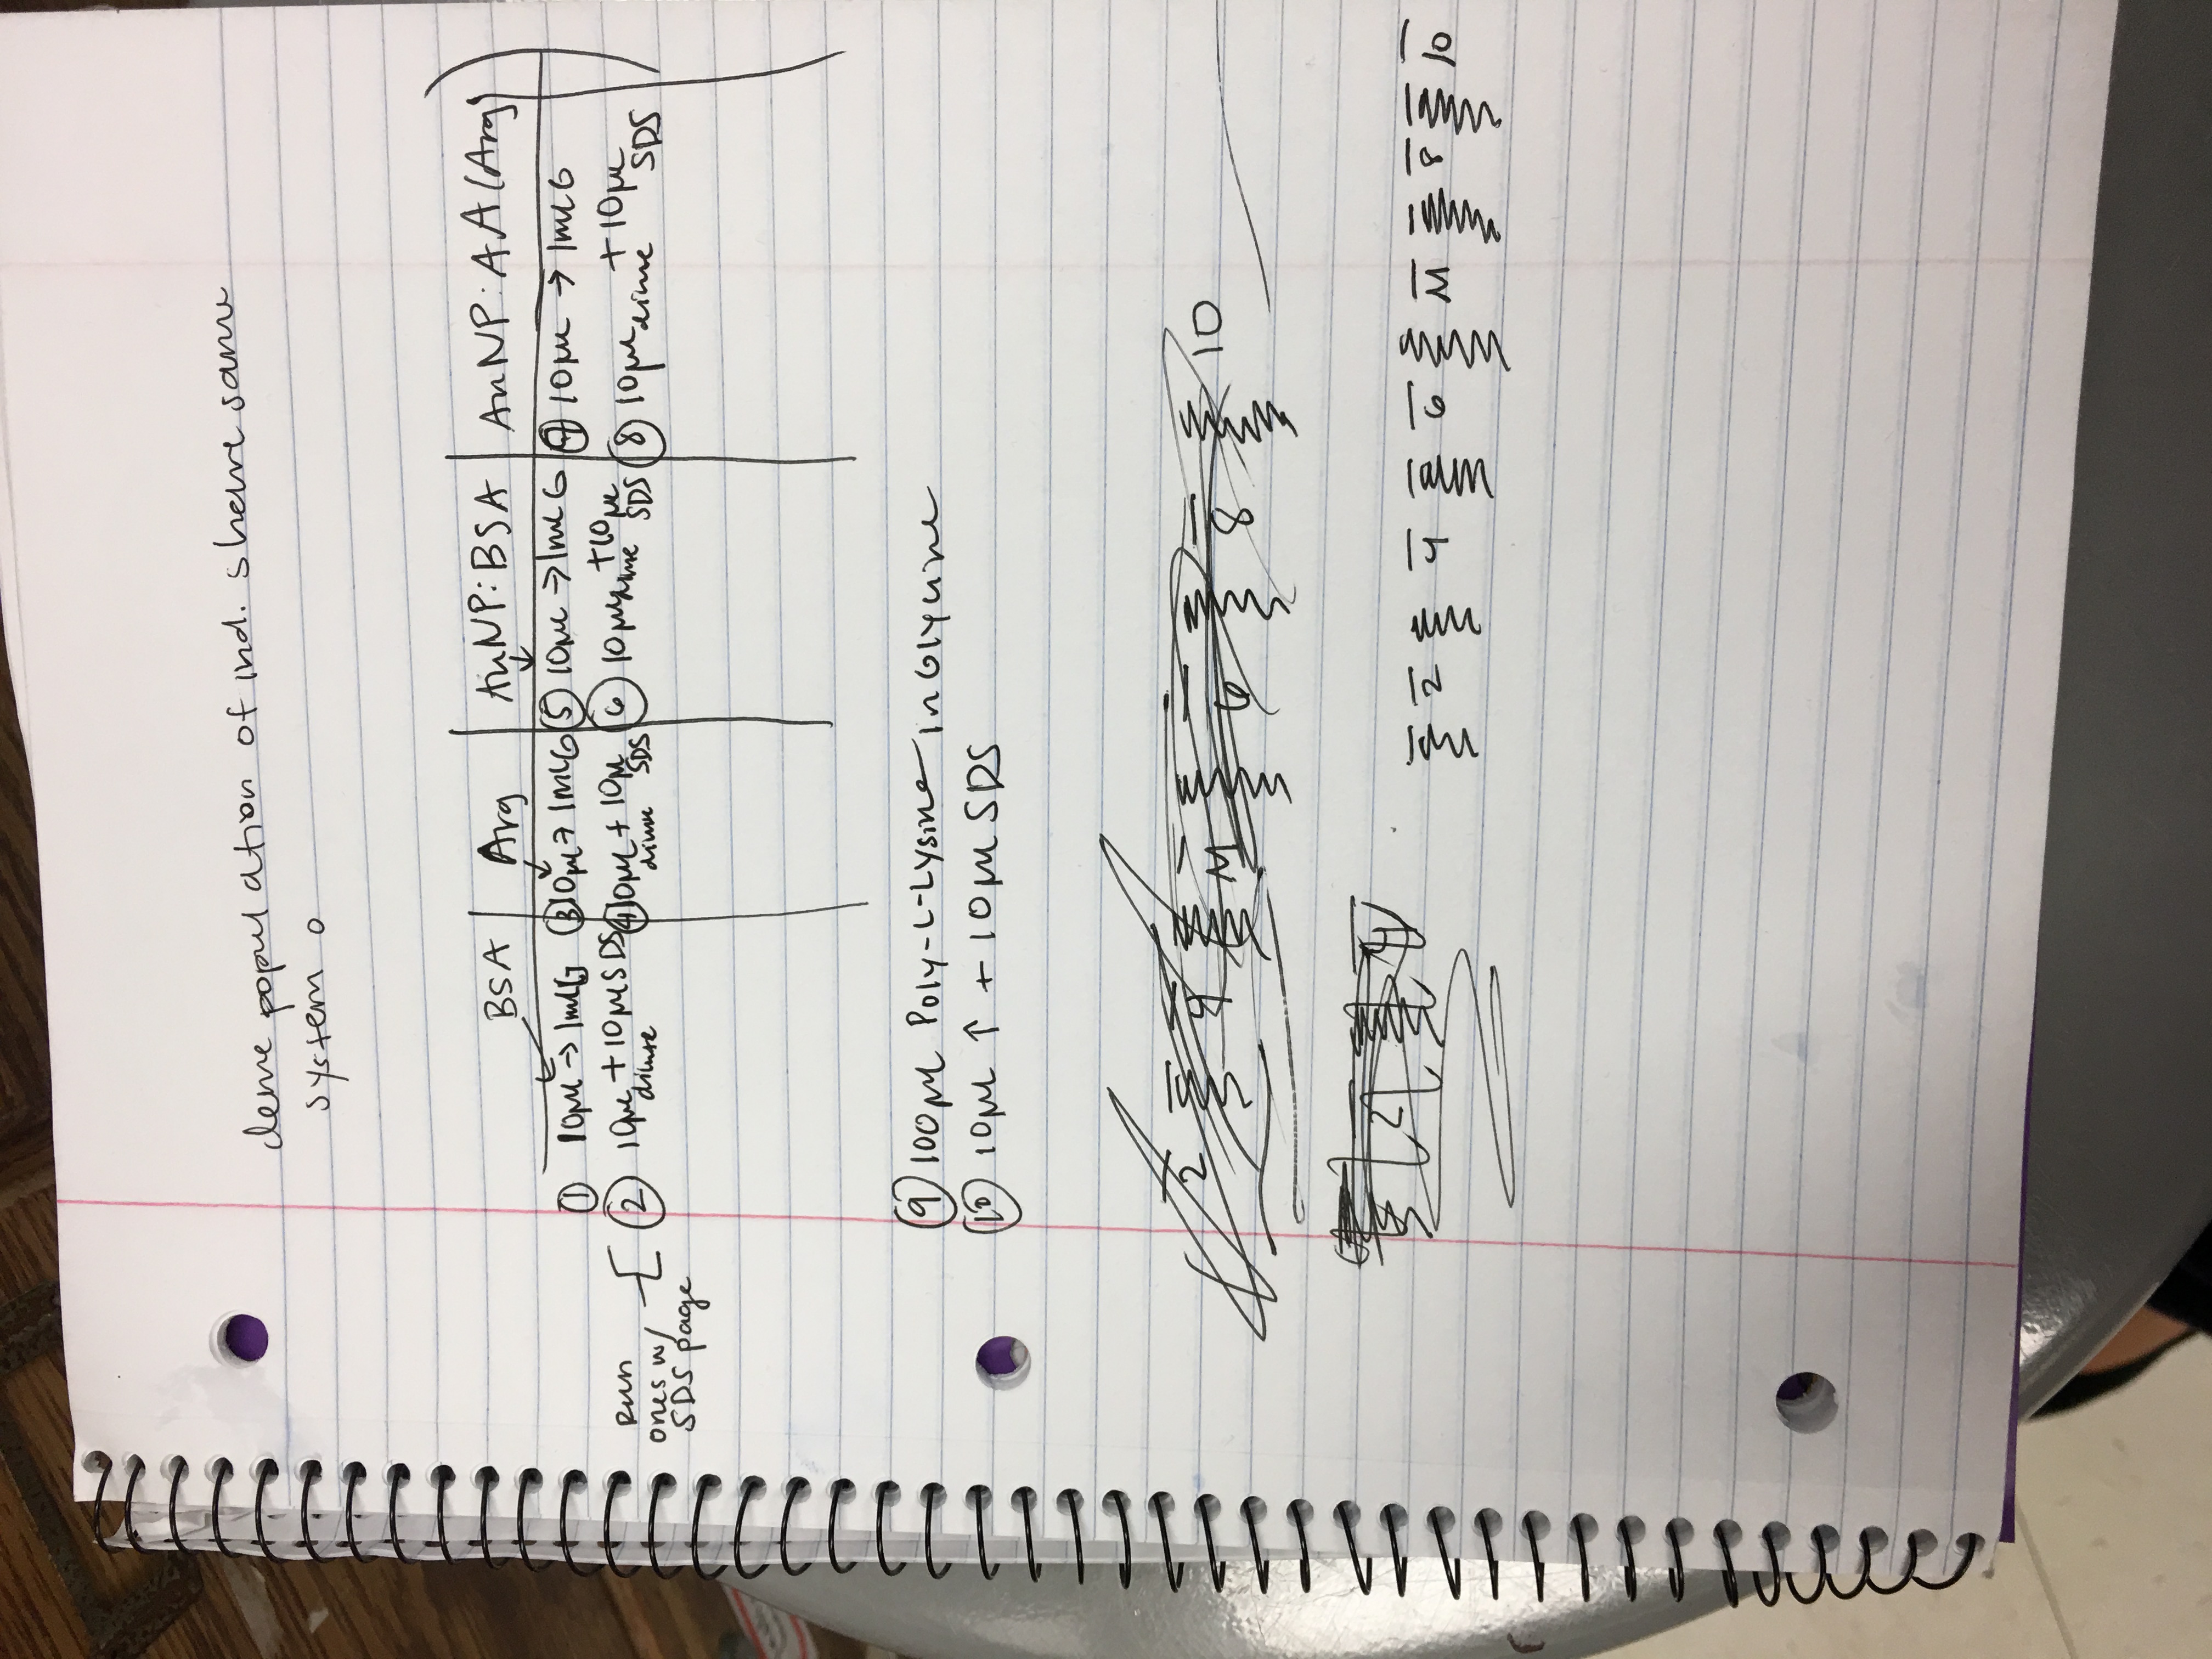 population of ind. sheme same
system
BSA | Arg | AuNP:BSA | AuNP:AA (Arg)
① 10µL → 1mL G ③ 10µL → 1mL G ⑤ 10µL → 1mL G ⑦ 10µL → 1mL G
Run ② 10µL + 10µL SDS ④ 10µL + 10µL SDS ⑥ 10µL + 10µL SDS ⑧ 10µL + 10µL SDS
ones w/ dilute dilute
SDS page
⑨ 100µL Poly-L-Lysine in Glycine
⑩ 10µL ↑ + 10µL SDS
2 4 M 6 8 10
2 4
2 4 6 M 8 10